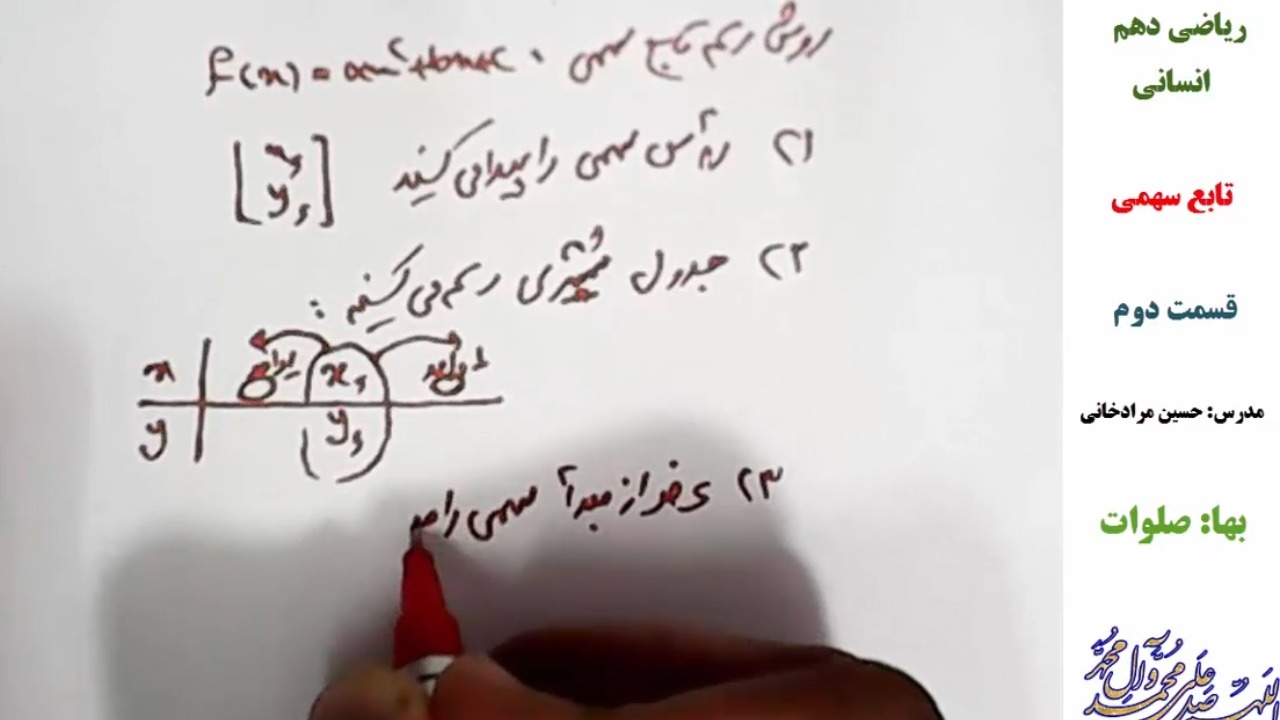 روش رسم تابع سهمی : f(x) = ax²+bx+c
(۱ رأس سهمی را پیدا می‌کنیم [xₛ yₛ]
(۲ جدول متغیری رسم می‌کنیم :
x | ۱واحد xₛ ۱واحد
y | yₛ
(۳ عرض از مبدأ سهمی را
ریاضی دهم
انسانی
تابع سهمی
قسمت دوم
مدرس: حسین مرادخانی
بها: صلوات
اللهم صل علی محمد وآل محمد